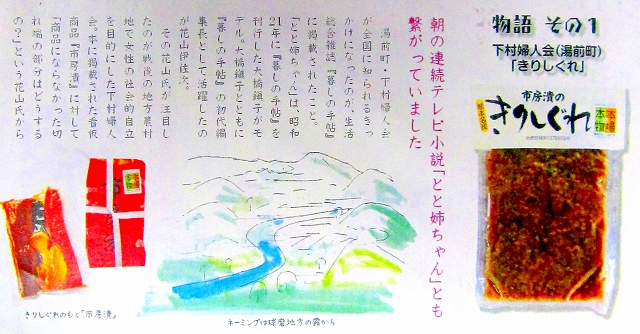 物語 その1
下村婦人会(湯前町)
「きりしぐれ」
市房漬の
きりしぐれ
本場
本物
熊本名産
朝の連続テレビ小説「とと姉ちゃん」とも
繋がっていました
湯前町・下村婦人会
が全国に知られるきっ
かけになったのが、生活
総合雑誌『暮しの手帖』
に掲載されたこと。
「とと姉ちゃん」は、昭和
21年に『暮しの手帖』を
刊行した大橋鎭子がモ
デル。大橋鎭子とともに
『暮しの手帖』の初代編
集長として活躍したの
が花山伊佐次。
その花山氏が注目し
たのが戦後の地方農村
地で女性の社会的自立
を目的にした下村婦人
会。本に掲載された看板
商品『市房漬』に対して
「商品にならなかった切
れ端の部分はどうする
の?」という花山氏から
きりしぐれのもと「市房漬」
ネーミングは球磨地方の霧から